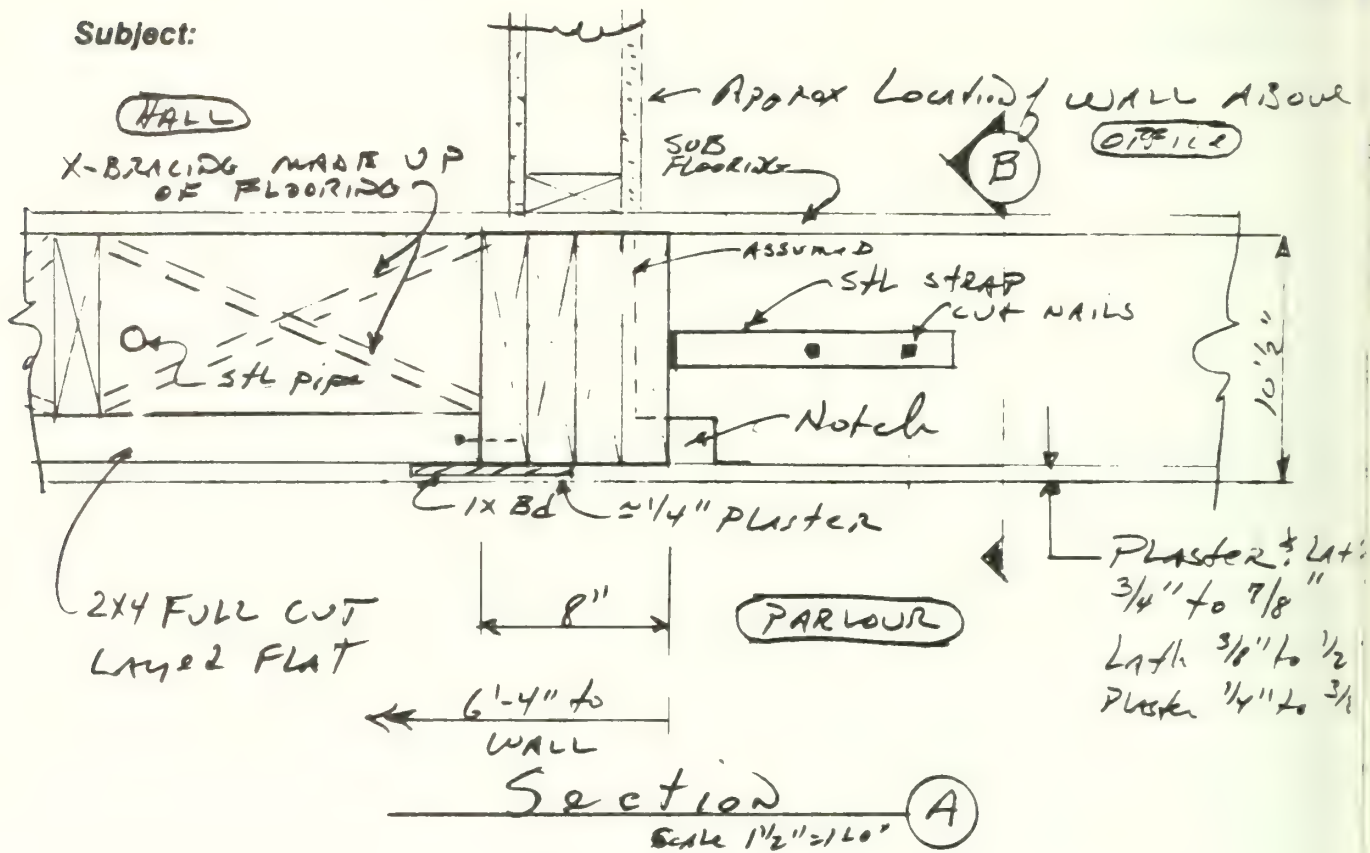 Subject:
HALL
X-BRACING MADE UP
OF FLOORING
Approx Location of WALL ABOVE
OFFICE
SUB
FLOORING
B
ASSUMED
Stl STRAP
CUT NAILS
10 1/2"
Stl pipe
Notch
1x Bd
≈ 1/4" PLASTER
2x4 FULL CUT
LAYED FLAT
8"
PARLOUR
PLASTER & LATH
3/4" to 7/8"
Lath 3/8" to 1/2
Plaster 1/4" to
6'-4" to
WALL
Section
A
Scale 1 1/2" =